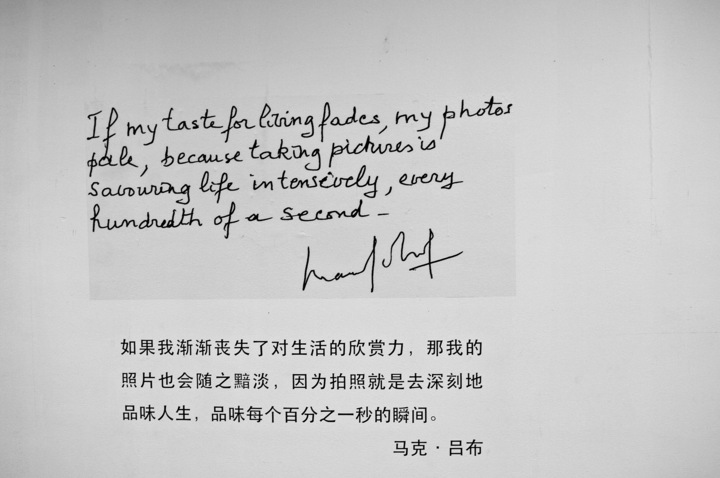 If my taste for living fades, my photos
pale, because taking pictures is
savouring life intensively, every
hundredth of a second –
如果我渐渐丧失了对生活的欣赏力，那我的
照片也会随之黯淡，因为拍照就是去深刻地
品味人生，品味每个百分之一秒的瞬间。
马克·吕布